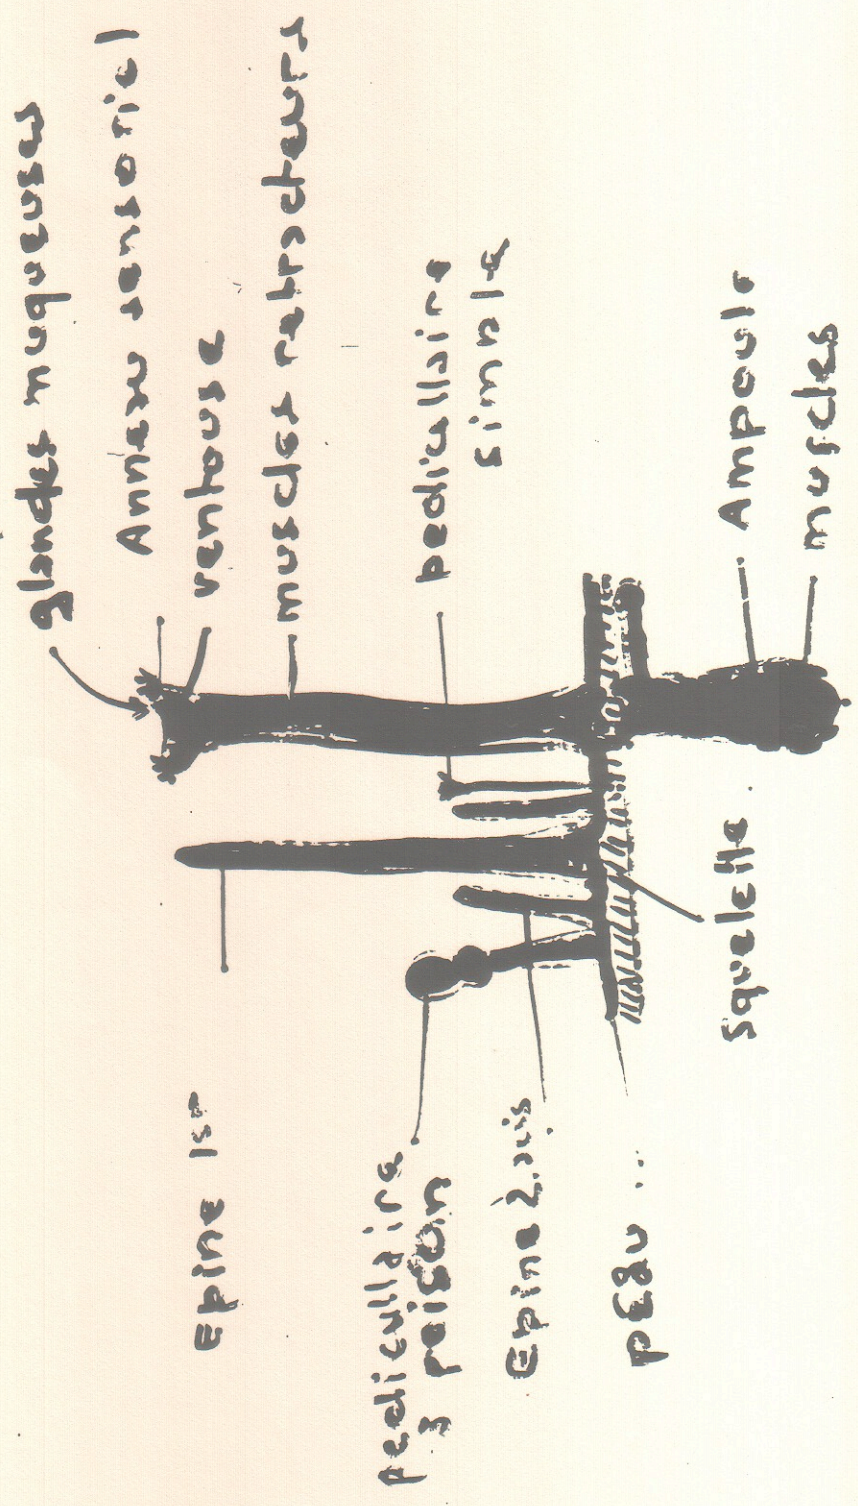 glandes muqueuses
Anneau sensoriel
ventouse
muscles retracteurs
pedicellaire
simple
Ampoule
muscles
Squelette
Epine 1re
pedicullaire
à poison
Epine 2
peau ...